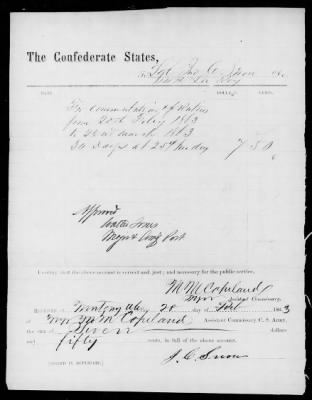 The Confederate States,
To Sgt Jno C. Snow Dr.
DATE. DOLLARS. CENTS.
For Commutation of Rations
from 20th Feby 1863
to March 1863
30 days at 25¢ per day 7 50
Approved
Walter Jones
Major & Comdg Post
I certify that the above account is correct and just; and necessary for the public service.
M M Copeland
Major Assistant Commissary.
RECEIVED at 28 day of 1863
of Major M M Copeland Assistant Commissary C. S. Army,
the sum of Seven dollars
and fifty cents, in full of the above account.
[SIGNED IN DUPLICATE.] J. C. Snow